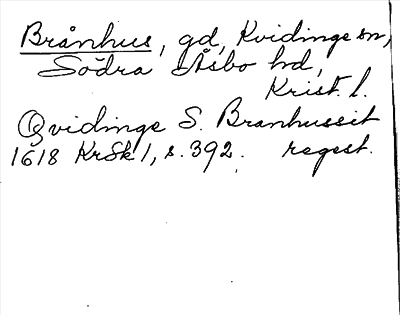 Brånhus, gd, Kvidinge sn,
Södra Åsbo hd,
Krist. l.
Qvidinge S. Branhusseit
1618 KrSk 1, s. 392. regest.